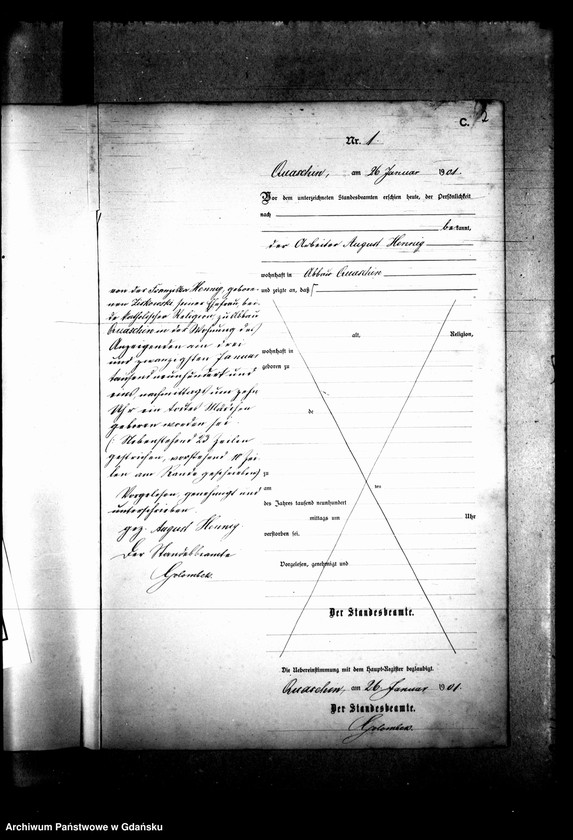 C. 2
Nr. 1
Quaschin, am 26 Januar 1901.
Vor dem unterzeichneten Standesbeamten erschien heute, der Persönlichkeit
nach
bekannt,
der Arbeiter August Hennig
wohnhaft in Abbau Quaschin
und zeigte an, daß
von der Franziska Hennig, gebore-
nen seiner Ehefrau, bei-
de katholischer Religion, zu Abbau
Quaschin in der Wohnung des
Anzeigenden am drei
und zwanzigsten Januar
tausend neunhundert und
eins, nachmittags um zehn
Uhr ein todtes Mädchen
geboren worden sei.
(Nebenstehend 23 Zeilen
gestrichen, vorstehend 10 Zei-
len am Rande geschrieben)
Vorgelesen, genehmigt und
unterschrieben
gez. August Hennig
Der Standesbeamte
Golombek.
alt, Religion,
wohnhaft in
geboren zu
de
zu
am ten
des Jahres tausend neunhundert
mittags um Uhr
verstorben sei.
Vorgelesen, genehmigt und
Der Standesbeamte.
Die Uebereinstimmung mit dem Haupt-Register beglaubigt.
Quaschin, am 26 Januar 1901.
Der Standesbeamte.
Golombek.
Archiwum Państwowe w Gdańsku